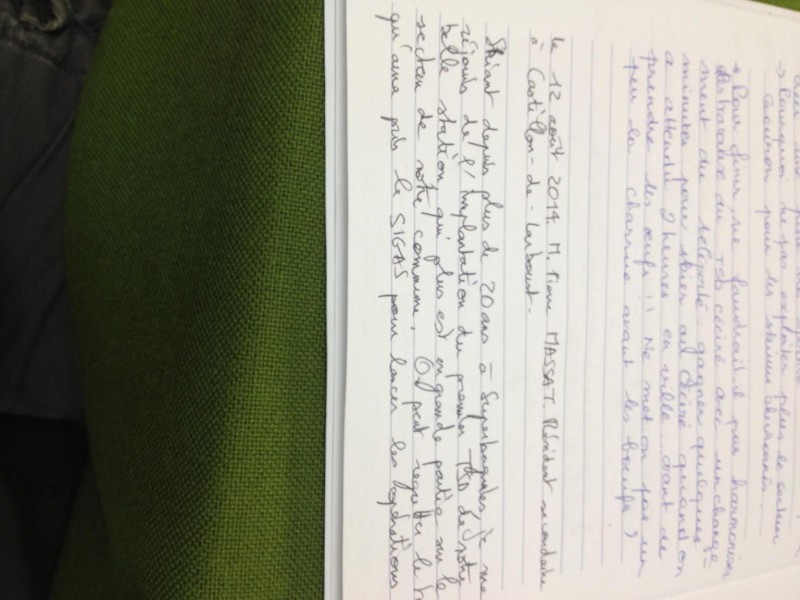 → Pourquoi ne pas exploiter plus le secteur
pour les skieurs chevronnés.
+ Pour finir ne faudrait-il pas harmoniser
les horaires du TSD Céciré avec un change-
ment de : gagner quelques
minutes pour skier au Céciré quand on
a attendu 2 heures en ville avant de
prendre les oeufs !! Ne met on pas un
peu la charrue avant les boeufs ?
le 12 août 2014. M. Pierre MASSAT. Résident secondaire
à Castillon-de-Larboust.
Skiant depuis plus de 20 ans à Superbagnères, je me
réjouis de l'implantation du premier TSD de notre
belle station qui plus est en grande partie sur le
secteur de notre commune. On peut regretter le
qu'aura pris le SIGAS pour lancer les opérations